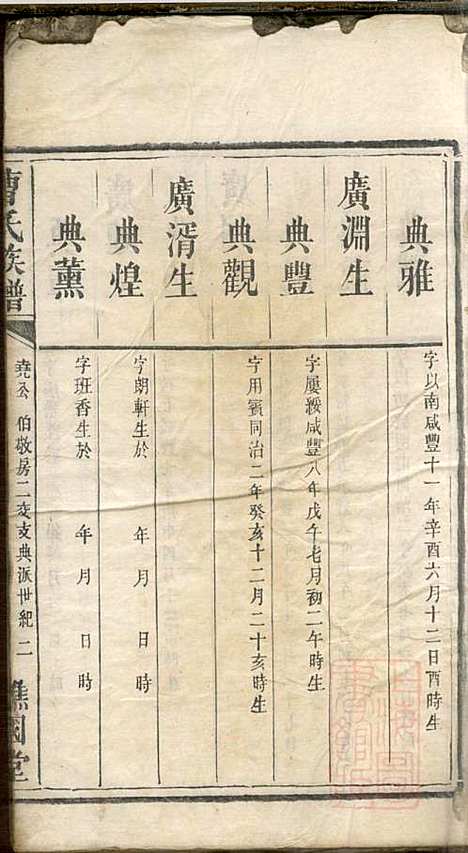 典雅
字以南咸豐十一年辛酉六月十二日酉時生
廣淵生
典豐
字屢綏咸豐八年戊午七月初二午時生
典觀
字用賓同治二年癸亥十二月二十亥時生
廣湑生
典煌
字朗軒生於 年 月 日 時
典薰
字班香生於 年 月 日 時
曹氏族譜
堯公 伯敬房二房支典派世紀 二
譙國堂